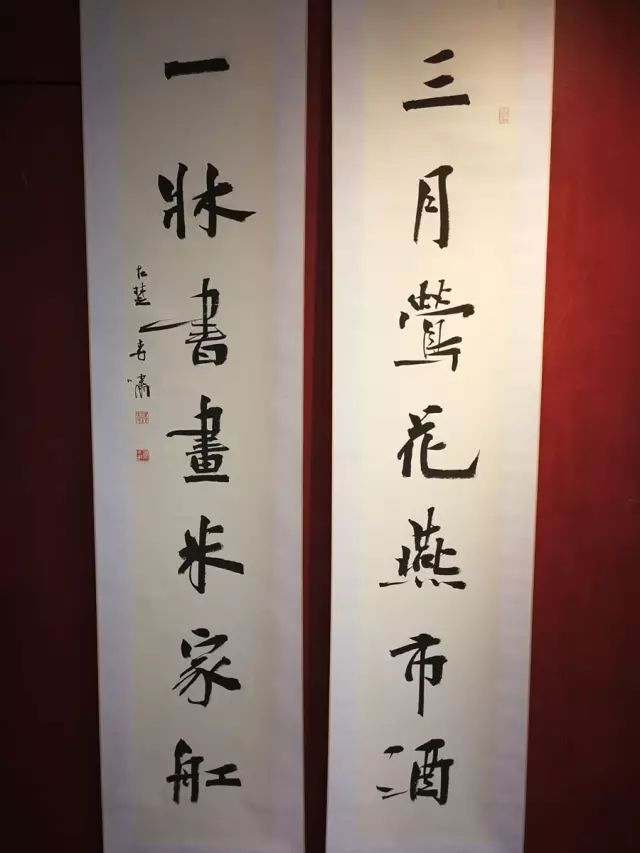 三月鶯花燕市酒
一牀書畫米家舡
楚
嘯